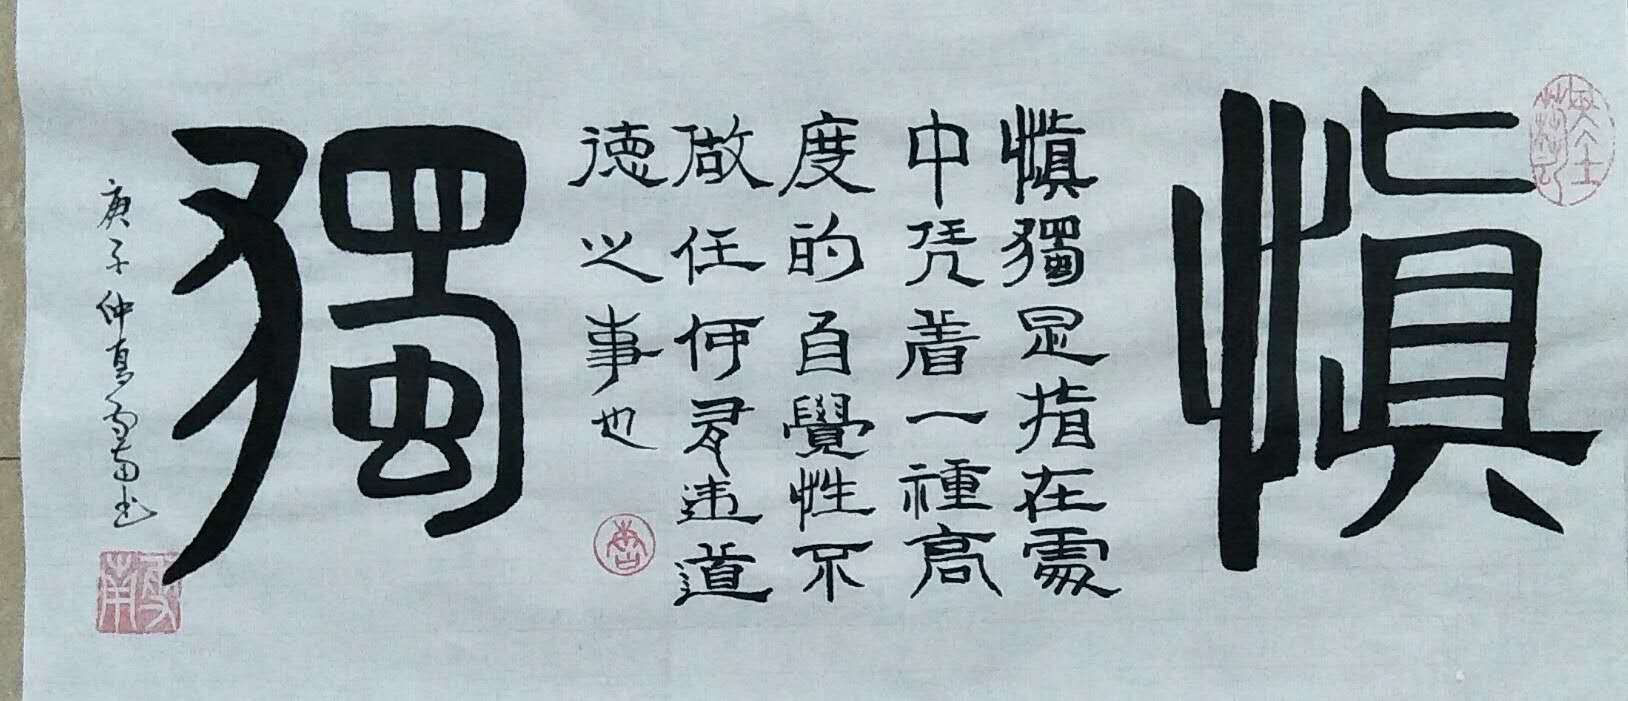 慎
慎獨是指在處
中凭着一種高
度的自覺性不
做任何有違道
德之事也
獨
庚子仲夏雪南书